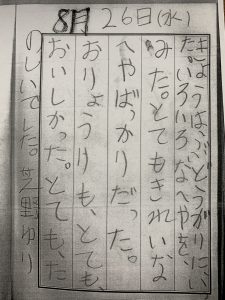 8月26日(水)
きょうは、ぶどうがりにい
た。いろいろなへやを、
みた。とてもきれいな
へやばっかりだった。
おりょうりも、とても、
おいしかった。とても、た
のしいでした。芝野ゆり